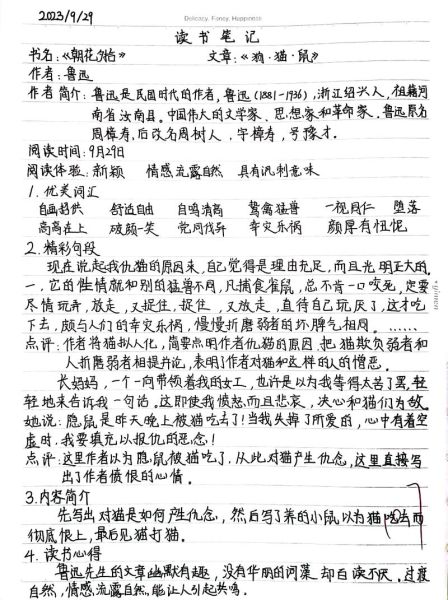 2023/9/29
Delicacy, Fancy, Happiness
读书笔记
书名:《朝花夕拾》 文章:《狗·猫·鼠》
作者:鲁迅
作者简介:鲁迅是民国时代的作者,鲁迅(1881-1936),浙江绍兴人,祖籍河
南省汝南县。中国伟大的文学家、思想家和革命家。鲁迅原名
周樟寿,后改名周树人,字樟寿,号豫才。
阅读时间:9月29日
阅读体验:新颖 情感流露自然 具有讽刺意味
1.优美词汇
自画招供 舒适自由 自鸣清高 鸷禽猛兽 一视同仁 堕落
高高在上 破颜一笑 党同伐异 幸灾乐祸 颜厚有忸怩
2.精彩句段
现在说起我仇猫的原因来,自己觉得是理由充足,而且光明正大的。
一、它的性情就和别的猛兽不同,凡捕食雀鼠,总不肯一口咬死,定要
尽情玩弄,放走,又捉住,捉住,又放走,直待自己玩厌了,这才吃
下去,颇与人们的幸灾乐祸,慢慢折磨弱者的坏脾气相同。……
点评:作者将猫拟人化,简要点明作者仇猫的原因,把猫欺负弱者和
人折磨弱者相提并论,表明了作者对猫和这样的人的憎恶。
长妈妈,一个一向带领着我的女工,也许是以为我等得太苦了罢,轻
轻地来告诉我一句话。这即使我愤怒而且悲哀,决心和猫们为敌。
她说:隐鼠是昨天晚上被猫吃去了!当我失掉了所爱的,心中有着空
虚时,我要填充以报仇的恶念!
点评:这里作者以为隐鼠被猫吃了,从此对猫产生仇念,这里直接写
出了作者愤恨的心情。
3.内容简介
先写出对猫是如何产生仇念,然后写了养的小鼠以为猫吃去而
彻底恨上,最后见猫打猫。
4.读书心得
鲁迅先生的文章幽默有趣,没有华丽的词藻却百读不厌。过渡
自然,情感流露自然,能让人引起共鸣。